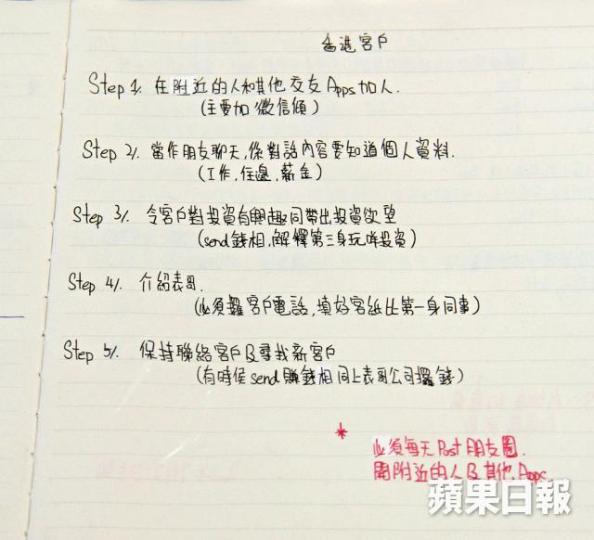 客戶
Step 1. 在附近的人和其他交友Apps加人.
(主要加微信傾)
Step 2. 當作朋友聊天,係對話內容要知道個人資料.
(工作,住邊,薪金)
Step 3. 令客戶對投資有興趣同帶出投資慾望
(send錢相,解釋第三身玩咩投資)
Step 4. 介紹表哥.
(必須攞客戶電話,填好客紙比第一身同事)
Step 5. 保持聯絡客戶及尋找新客戶
(有時侯send賺錢相同上表哥公司攞錢)
*
必須每天Post朋友圈.
開附近的人及其他Apps.
蘋果日報